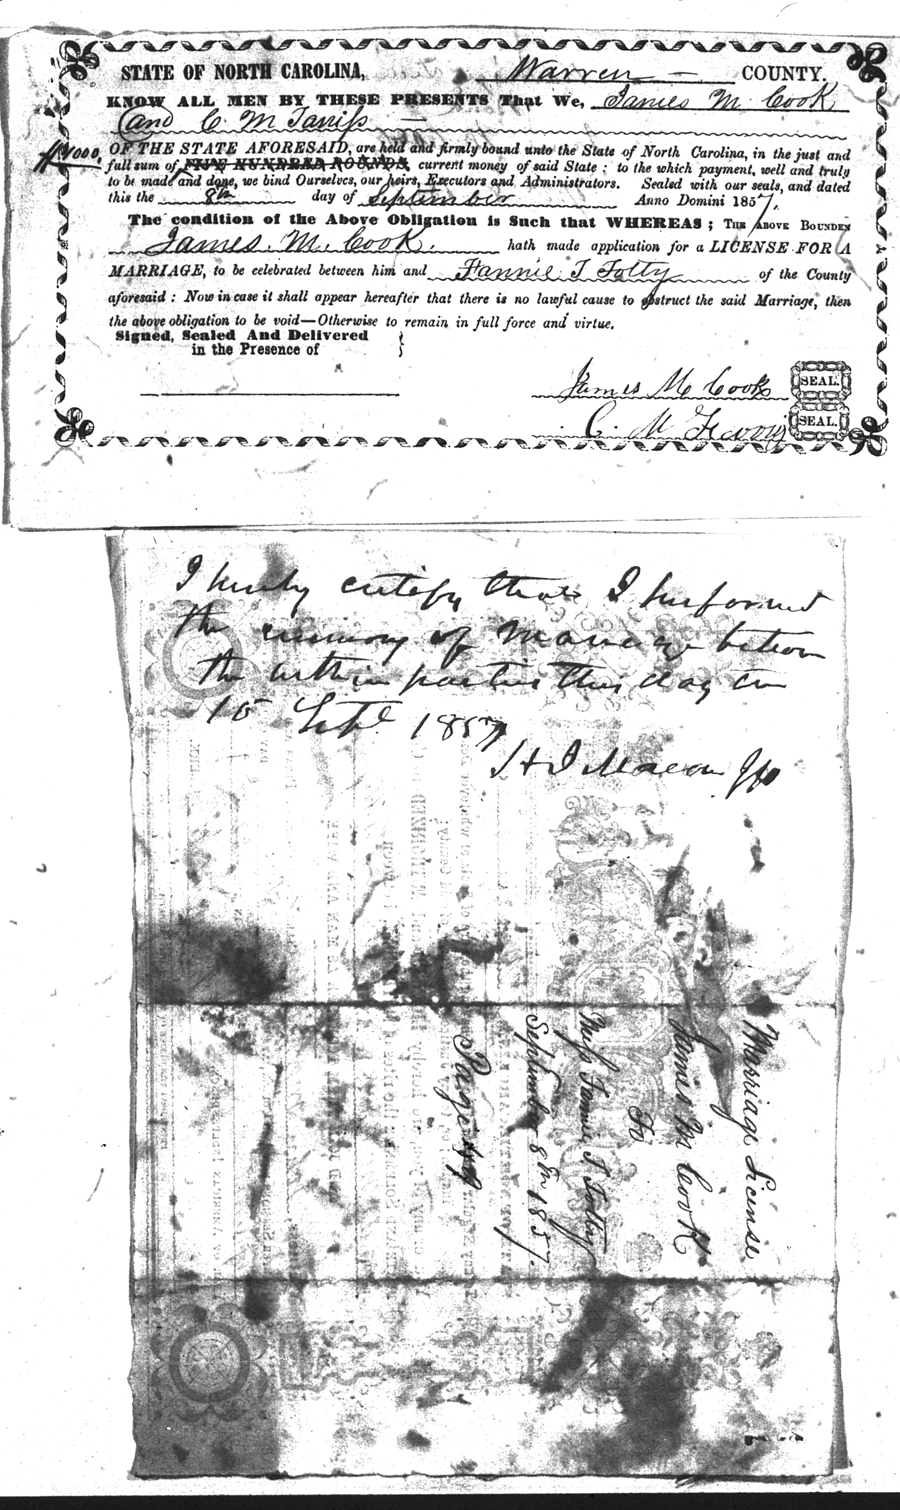 STATE OF NORTH CAROLINA, Warren COUNTY.
KNOW ALL MEN BY THESE PRESENTS That We, James M. Cook
and C. M.
$1000. OF THE STATE AFORESAID, are held and firmly bound unto the State of North Carolina, in the just and
full sum of FIVE HUNDRED POUNDS, current money of said State; to the which payment, well and truly
to be made and done, we bind Ourselves, our heirs, Executors and Administrators. Sealed with our seals, and dated
this the 8th day of September Anno Domini 1857.
The condition of the Above Obligation is Such that WHEREAS; THE ABOVE BOUNDEN
James. M. Cook. hath made application for a LICENSE FOR A
MARRIAGE, to be celebrated between him and Fannie T Totty of the County
aforesaid: Now in case it shall appear hereafter that there is no lawful cause to obstruct the said Marriage, then
the above obligation to be void—Otherwise to remain in full force and virtue.
Signed, Sealed And Delivered
in the Presence of
James M Cook SEAL.
C. M SEAL.
I hereby certify that I performed
the cerimony of Marriage between
the within parties this day
15 Sept 1857
Macon JP
Marriage License
James M. Cook
To
Miss Fannie T Totty
September 8th 1857.
Paige